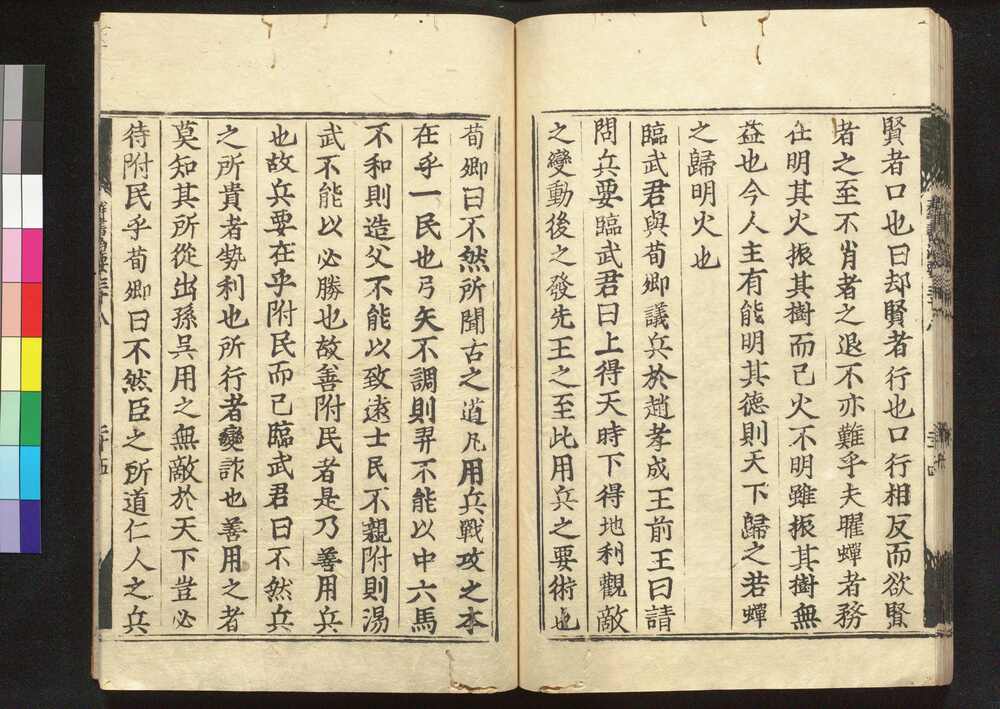 賢者口也曰却賢者行也口行相反而欲賢
者之至不肖者之退不亦難乎夫曜蟬者務
在明其火振其樹而已火不明雖振其樹無
益也今人主有能明其德則天下歸之若蟬
之歸明火也
臨武君與荀卿議兵於趙孝成王前王曰請
問兵要臨武君曰上得天時下得地利觀敵
之變動後之發先王之至此用兵之要術也
荀卿曰不然所聞古之道凡用兵戰攻之本
在乎一民也弓矢不調則羿不能以中六馬
不和則造父不能以致遠士民不親附則湯
武不能以必勝也故善附民者是乃善用兵
也故兵要在乎附民而已臨武君曰不然兵
之所貴者勢利也所行者變詐也善用之者
莫知其所從出孫吳用之無敵於天下豈必
待附民乎荀卿曰不然臣之所道仁人之兵
群書治要三十八
二十五